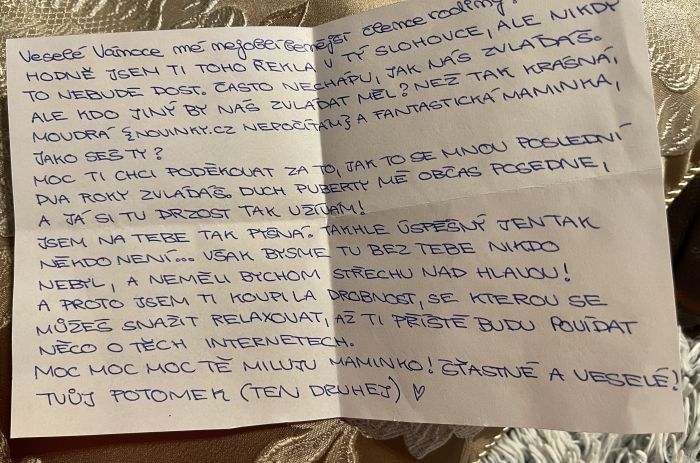 Veselé Vánoce mé nejoblíbenější člence rodiny!
HODNĚ JSEM TI TOHO ŘEKLA V TÝ SLOHOVCE, ALE NIKDY
TO NEBUDE DOST. ČASTO NECHÁPU, JAK NÁS ZVLÁDÁŠ.
ALE KDO JINÝ BY NÁS ZVLÁDAT MĚL? NEŽ TAK KRÁSNÁ,
MOUDRÁ {NOVINKY.CZ NEPOČÍTÁM} A FANTASTICKÁ MAMINKA,
JAKO SEŠ TY?
MOC TI CHCI PODĚKOVAT ZA TO, JAK TO SE MNOU POSLEDNÍ
DVA ROKY ZVLÁDÁŠ. DUCH PUBERTY MĚ OBČAS POSEDNE,
A JÁ SI TU DRZOST TAK UŽÍVÁM!
JSEM NA TEBE TAK PYŠNÁ. TAKHLE ÚSPĚŠNÝ JEN TAK
NĚKDO NENÍ... VŠAK BYSME TU BEZ TEBE NIKDO
NEBYL, A NEMĚLI BYCHOM STŘECHU NAD HLAVOU!
A PROTO JSEM TI KOUPILA DROBNOST, SE KTEROU SE
MŮŽEŠ SNAŽIT RELAXOVAT, AŽ TI PŘÍŠTĚ BUDU POVÍDAT
NĚCO O TĚCH INTERNETECH.
MOC MOC MOC TĚ MILUJU MAMINKO! ŠŤASTNÉ A VESELÉ!
TVŮJ POTOMEK (TEN DRUHEJ) ♡